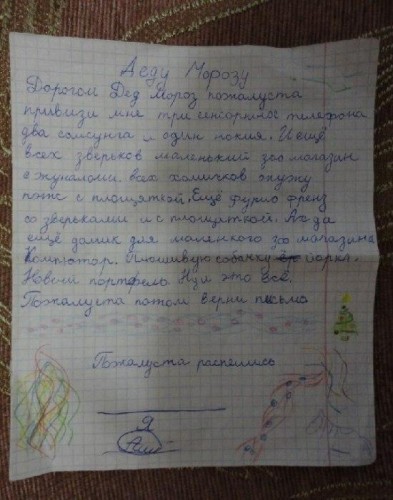 Деду Морозу
Дорогом Дед Мороз пожалуста
привизи мне три сенсорнные телефона
два сомсунга и один нокия. И ещё
всех зверьков маленький зоо магазин
с жуналом всех хомичков
с площяткой. Ещё фурио френз
со зверьками и с площяткой. Ах да
ещё домик для маленкого зоо магазина
Компютор. Плюшивую собачку йорка.
Новени портфель. Ну и это всё.
Пожалуста потом верни письмо
Пожалуста распешись
Я